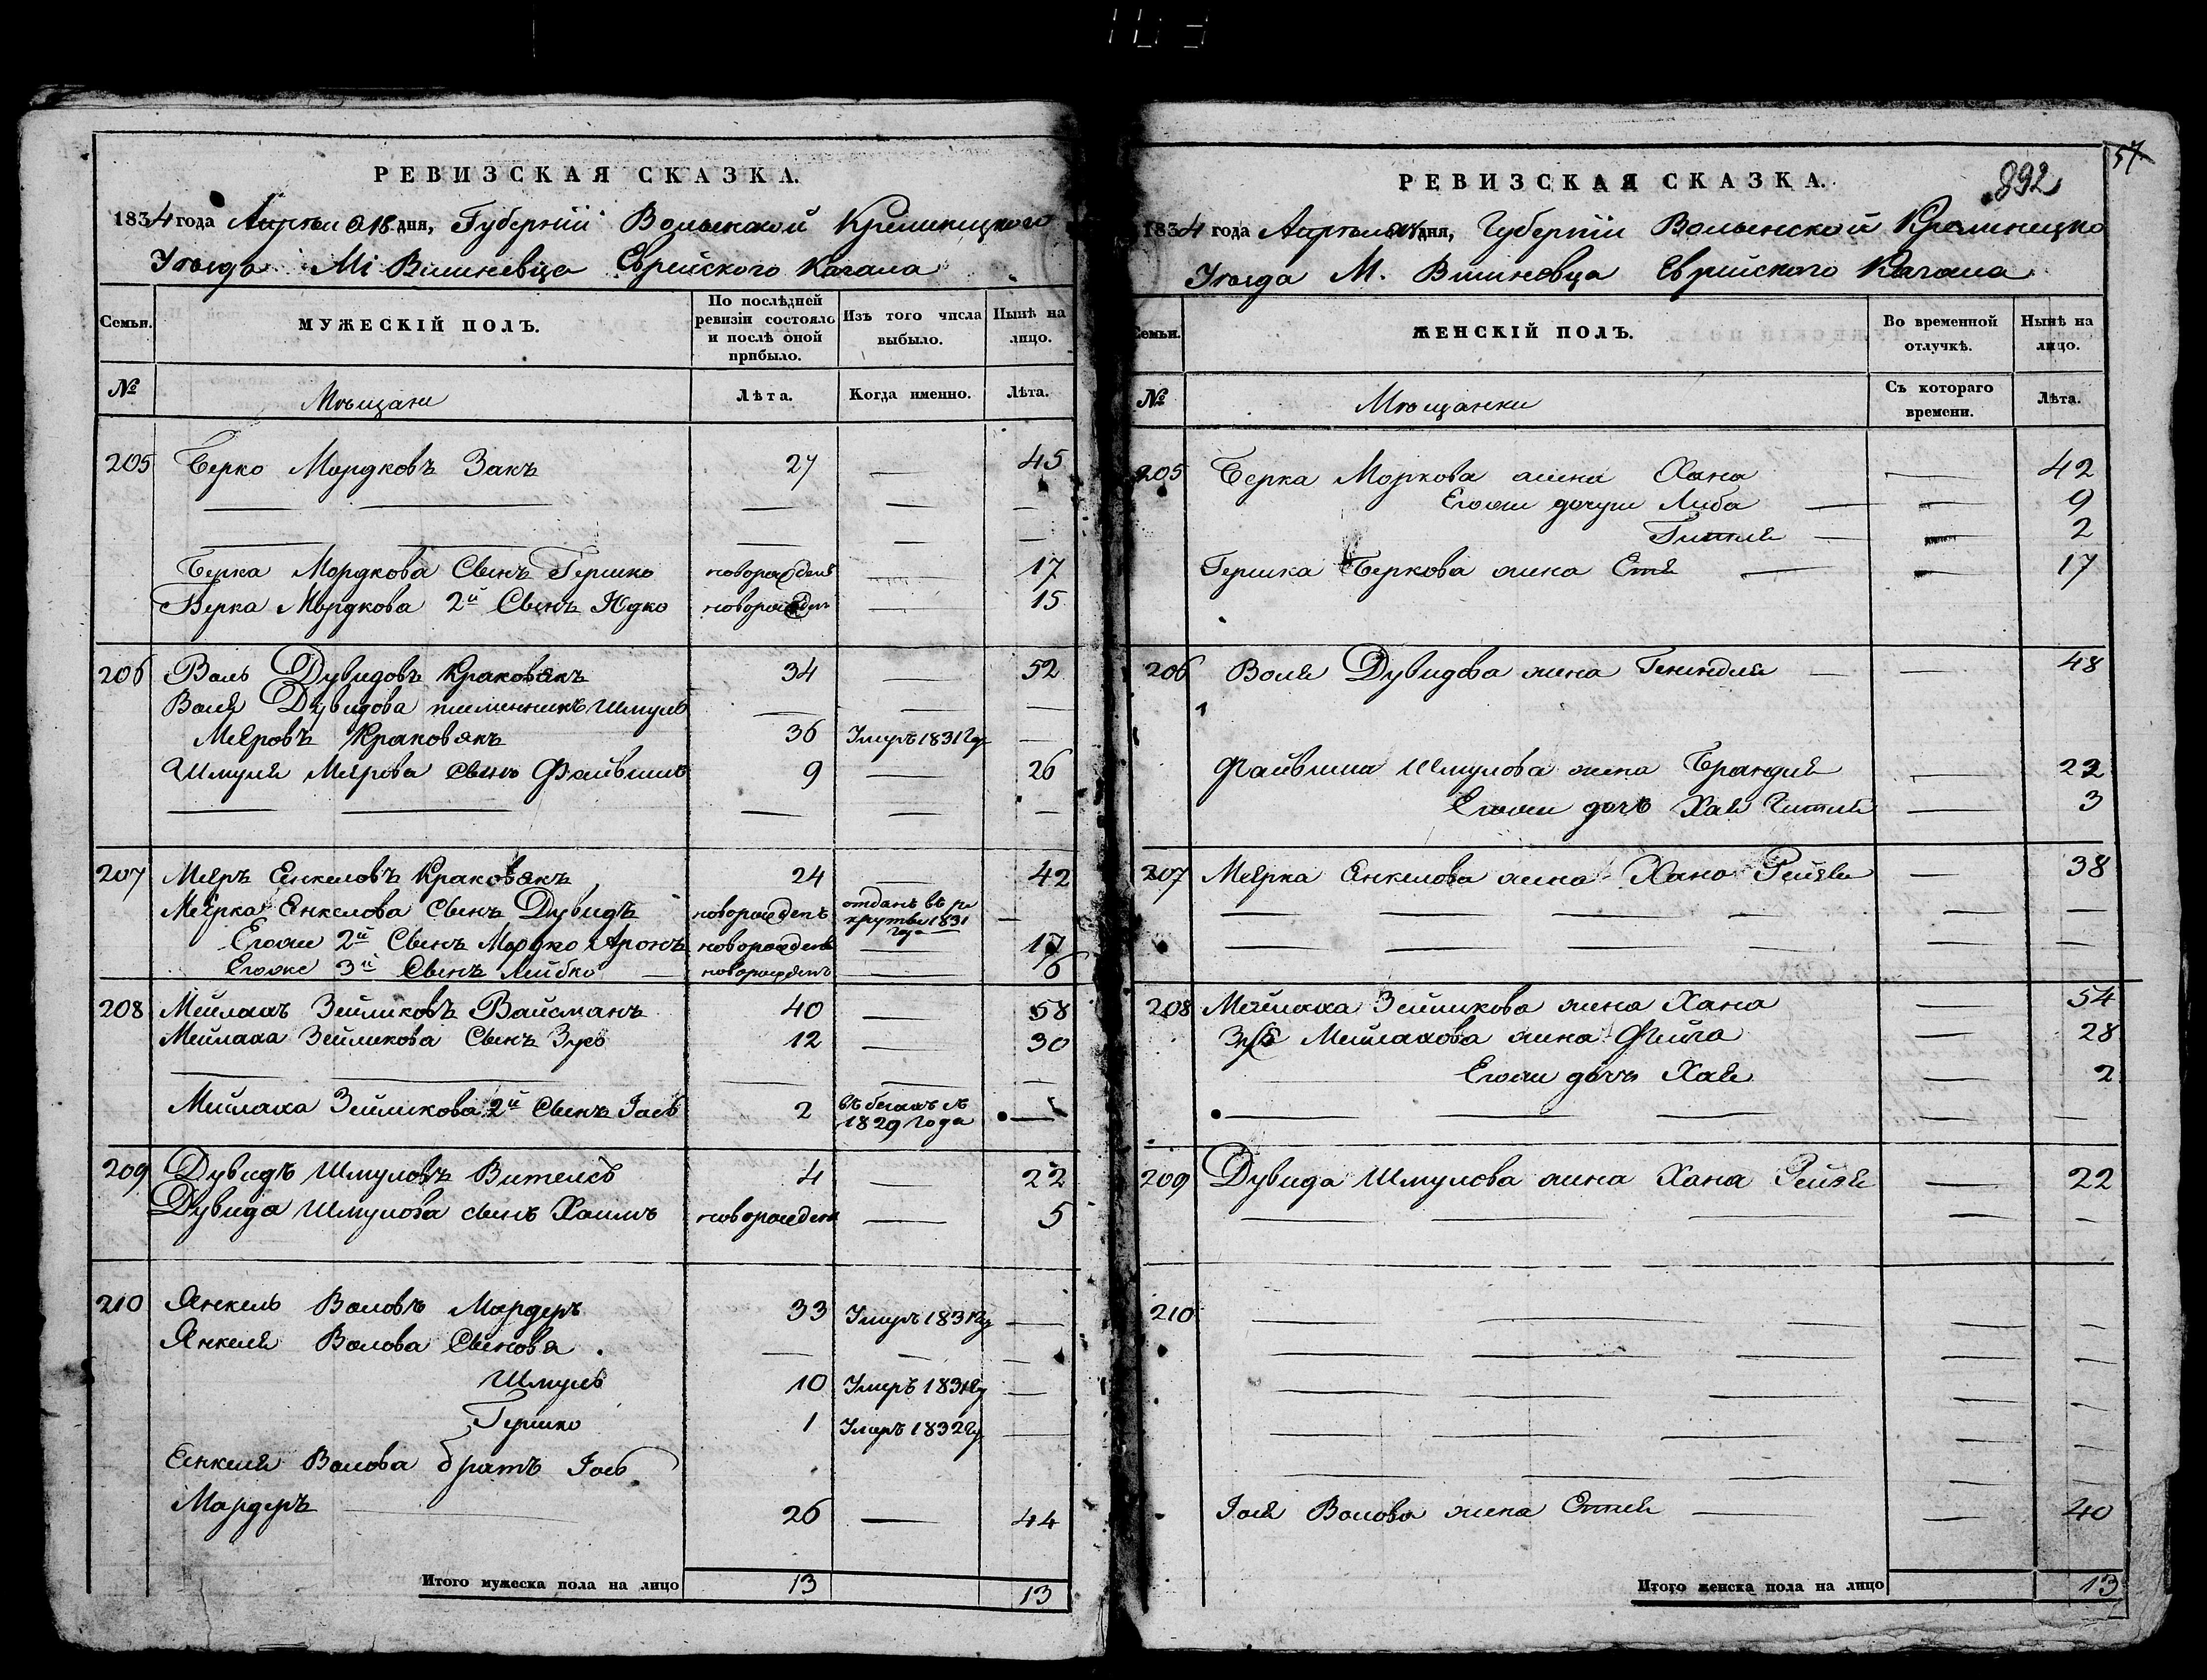 РЕВИЗСКАЯ СКАЗКА.
1834 года Апреля 18 дня, Губерніи Волынской Кременецкого
Уѣзда М. Вишневца Еврейского Кагала
Семьи.
МУЖЕСКІЙ ПОЛЪ.
По послѣдней ревизіи состояло и послѣ оной прибыло.
Изъ того числа выбыло.
Нынѣ на лицо.
№
Мѣщане
Лѣта.
Когда именно.
Лѣта.
205 Берко Мордковъ Закъ 27 — 45
Берка Мордкова Сынъ Гершко новорожденъ — 17
Берка Мордкова 2й Сынъ Юдко новорожденъ — 15
206 Воль Дувидовъ Краковякъ 34 — 52
Воля Дувидова племенникъ Шмуль — — —
Меяровъ Краковякъ 36 Умеръ 1831 гу —
Шмуля Меярова Сынъ Файвишъ 9 — 26
207 Меяръ Енкеловъ Краковякъ 24 — 42
Меярка Енкелова Сынъ Дувидъ новорожденъ отданъ въ рекруты 1831 года —
Егоже 2й Сынъ Мордко Аронъ новорожденъ — 17
Егоже 3й Сынъ Лейбко — новорожденъ — 6
208 Мейлахъ Зейликовъ Вайсманъ 40 — 58
Мейлаха Зейликова Сынъ Зусь 12 — 30
Мейлаха Зейликова 2й Сынъ Іось 2 въ бегахъ съ 1829 года —
209 Дувидъ Шмуловъ Вителсъ 4 — 22
Дувида Шмулова сынъ Хаимъ новорожденъ — 5
210 Янкель Воловъ Мардеръ 33 Умеръ 1831 гу —
Янкеля Волова Сыновя — — —
Шмуль 10 Умеръ 1831 гу —
Гершко 1 Умеръ 1832 гу —
Енкеля Волова братъ Іось
Мардеръ 26 — 44
Итого мужеска пола на лицо 13 13
57
892
РЕВИЗСКАЯ СКАЗКА.
1834 года Апреля дня, Губерніи Волынской Кременецко
Уѣзда М. Вишневца Еврейского Кагала
Семьи.
ЖЕНСКІЙ ПОЛЪ.
Во временной отлучкѣ.
Нынѣ на лицо.
№
Мѣщанки
Съ котораго времени.
Лѣта.
205 Берка Моркова жена Хана — 42
Егоже дочери Либа — — 9
Гитля — — 2
Гершка Беркова жена Етя — — 17
206 Воля Дувидова жена Гениндля — — 48
Файвиша Шмулова жена Брандля — 22
Егоже дочь Хая Гитля — 3
207 Меярка Енкелова жена Хана Рейзя — 38
208 Мейлаха Зейликова жена Хана — 54
Зуся Мейлахова жена Фейга — 28
Егоже дочь Хая — 2
209 Дувида Шмулова жена Хана Рейзя — 22
210
Іося Волова жена Еттля — — 40
Итого женска пола на лицо 13